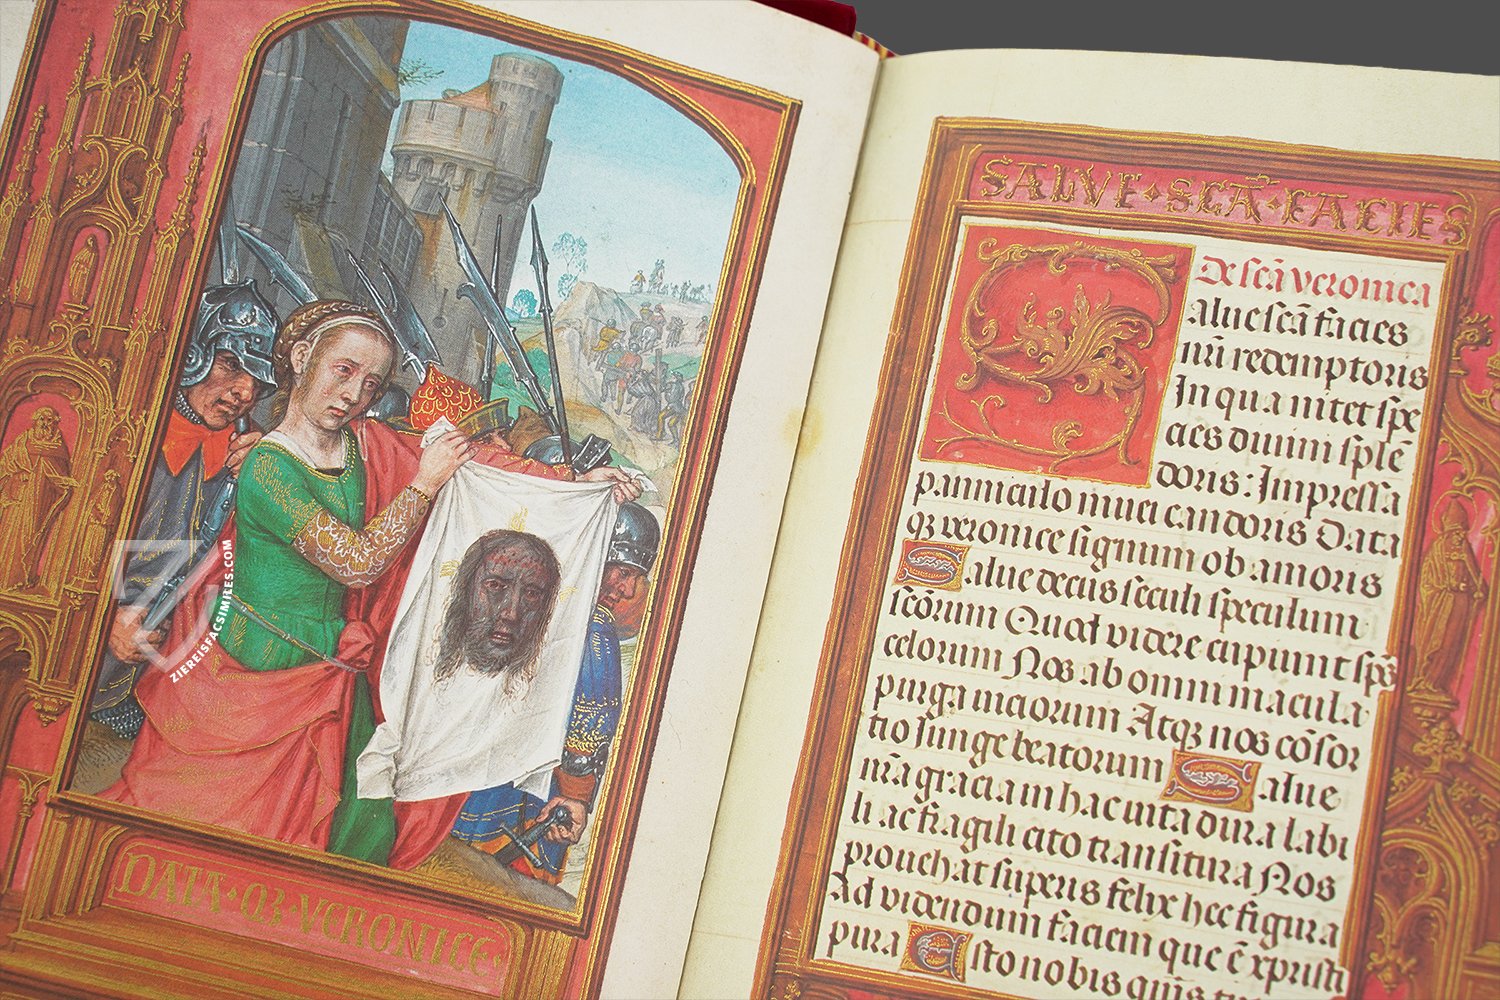 DATA · Q3 · VERONICE ·
SALVE · SCĀ · FACIES
De scā veronica
alue scā facies
nr̄i redemptoris
In qua nitet spe
cies diuini splē
doris: Impressa
panniculo niuei candoris Data
q3 veronice signum ob amoris
Salue decus seculi speculum
scōrum Quod videre cupiunt sp̄s
celorum Nos ab omni macula
purga uiciorum Atq3 nos cōsor
tio Iunge beatorum Salue
nr̄a gracia in hac uita dura labi
li ac fragili cito transitura Nos
prouehat superis felix hec figura
Ad videndum faciem que ē xpristi
pura Esto nobis quis
ZIEREISFACSIMILES.COM